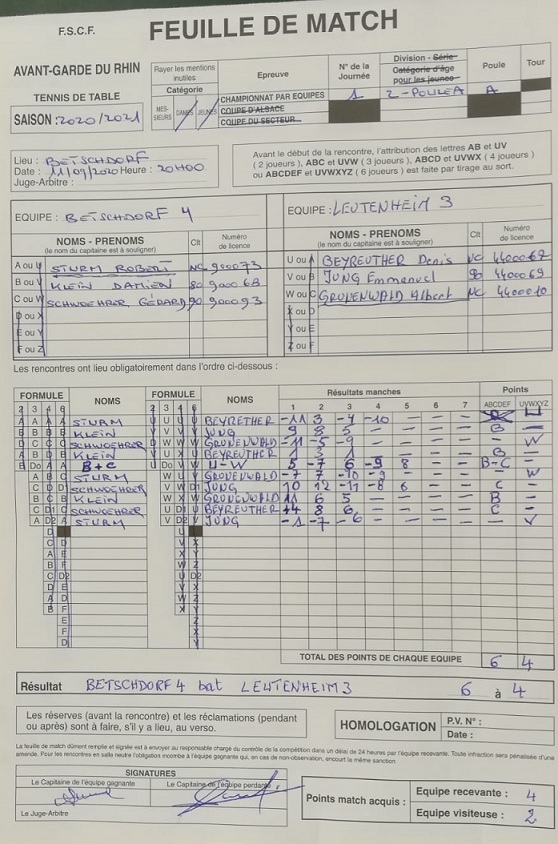 F.S.C.F.
FEUILLE DE MATCH
AVANT-GARDE DU RHIN
TENNIS DE TABLE
SAISON : 2020/2021
Rayer les mentions inutiles
Catégorie
MES-SIEURS DAMES JEUNES
Epreuve
CHAMPIONNAT PAR EQUIPES
COUPE D'ALSACE
COUPE DU SECTEUR
N° de la Journée
1
Division - Série
Catégorie d'âge
pour les jeunes
2 - POULE A
Poule
A
Tour
Lieu : BETSCHDORF
Date : 11/09/2020 Heure : 20H00
Juge-Arbitre :
Avant le début de la rencontre, l'attribution des lettres AB et UV
( 2 joueurs ), ABC et UVW ( 3 joueurs ), ABCD et UVWX ( 4 joueurs )
ou ABCDEF et UVWXYZ ( 6 joueurs ) est faite par tirage au sort.
EQUIPE : BETSCHDORF 4
NOMS - PRENOMS
(le nom du capitaine est à souligner)
Clt
Numéro de licence
A ou U STURM ROBERT NC 900073
B ou V KLEIN DAMIEN 80 900068
C ou W SCHWOEHRER GÉRARD 90 90093
D ou X
E ou Y
F ou Z
EQUIPE : LEUTENHEIM 3
NOMS - PRENOMS
(le nom du capitaine est à souligner)
Clt
Numéro de licence
U ou A BEYREUTHER Denis NC 4400067
V ou B JUNG Emmanuel 90 4400069
W ou C GRUNENWALD Albert NC 4400010
X ou D
Y ou E
Z ou F
Les rencontres ont lieu obligatoirement dans l'ordre ci-dessous :
FORMULE NOMS FORMULE NOMS Résultats manches Points
2 3 4 6 2 3 4 6 1 2 3 4 5 6 7 ABCDEF UVWXYZ
STURM BEYRETHER -11 3 -7 -10 - - -
KLEIN 9 8 5 - - - - B -
SCHWOEHRER GRUNENWALD -11 -5 -9 - - - - - W
KLEIN BEYREUTHER 1 3 1 - - - - B -
B+C U-W 5 -7 6 -9 8 - - B-C -
STURM GRUNENWALD -7 7 -10 -9 - - - - W
SCHWOEHRER JUNG 10 12 -11 -8 6 - - C -
KLEIN GRUNENWALD 11 6 5 - - - - B -
SCHWOEHRER BEYREUTHER 8 6 - - - - C -
STURM JUNG -1 -7 -6 - - - - - V
TOTAL DES POINTS DE CHAQUE EQUIPE 6 4
Résultat BETSCHDORF 4 bat LEUTENHEIM 3 6 à 4
Les réserves (avant la rencontre) et les réclamations (pendant
ou après) sont à faire, s'il y a lieu, au verso.
HOMOLOGATION
P.V. N° :
Date :
La feuille de match dûment remplie et signée est à envoyer au responsable chargé du contrôle de la compétition dans un délai de 24 heures par l'équipe recevante. Toute infraction sera pénalisée d'une
amende. Pour les rencontres en salle neutre l'obligation incombe à l'équipe gagnante qui, en cas de non-observation, encourt la même sanction
SIGNATURES
Le Capitaine de l'équipe gagnante
Le Capitaine de l'équipe perdante
Le Juge-Arbitre
Points match acquis :
Equipe recevante : 4
Equipe visiteuse : 2